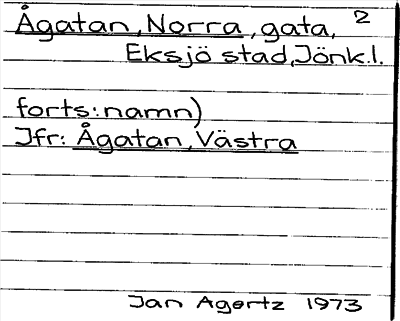 Ågatan, Norra, gata, 2
Eksjö stad, Jönk.l.
forts: namn)
Jfr: Ågatan, Västra
Jan Agertz 1973